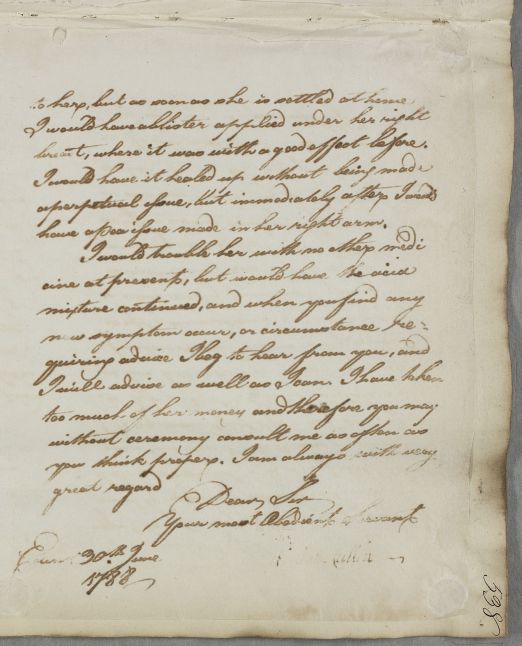 to her, but as soon as she is settled at home
I would have a blister applied under her right
breast, where it was with a good effect before.
I would have it healed up without being made
a perpetual issue, but immediately after I would
have a pea issue made in her right arm.
I would trouble her with no other medi
cine at present, but would have the acid
mixture continued, and when you find any
new symptom occur, or circumstance re=
quiring advice I beg to hear from you, and
I will advise as well as I can. I have taken
too much of her money and therefore you may
without ceremony consult me as often as
you think proper. I am always with very
great regard
Dear Sir
Your most Obedient Servant
30th June
1788
598